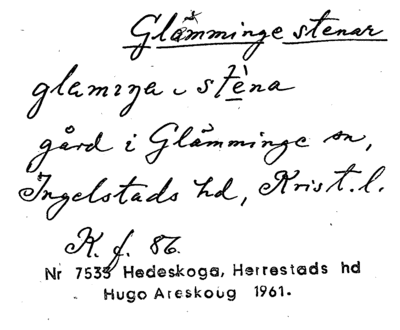 Glämminge stenar
glamiŋa ˬ stèna
gård i Glämminge sn,
Ingelstads hd, Krist. l.
K. f. 86.
Nr 7533 Hedeskoga, Herrestads hd
Hugo Areskoug 1961.